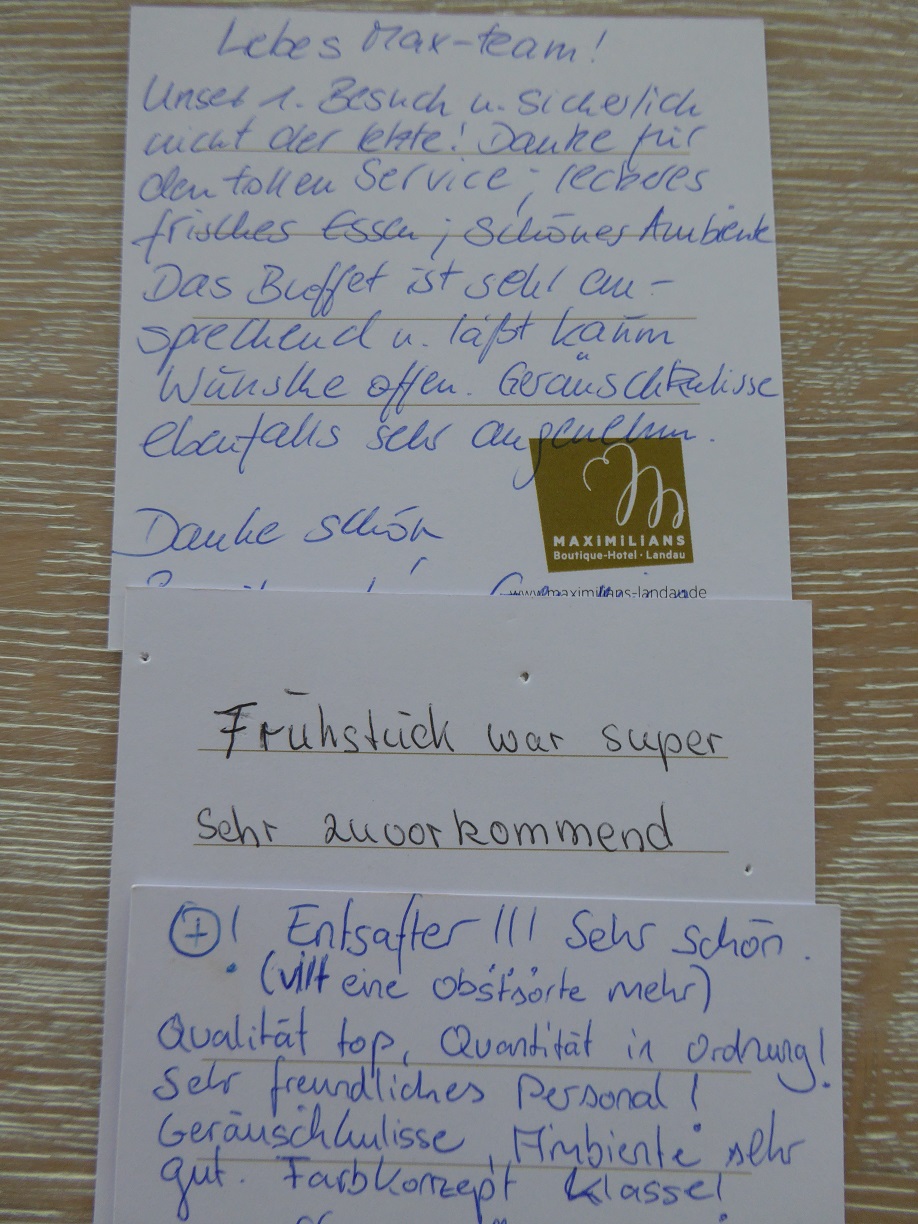 Liebes Max-team!
Unser 1. Besuch u. sicherlich
nicht der letzte! Danke für
den tollen Service; leckeres
frisches Essen; schönes Ambiente
Das Buffet ist sehr an-
sprechend u. läßt kaum
Wünsche offen. Geräuschkulisse
ebenfalls sehr angenehm.
Danke schön
MAXIMILIANS
Boutique-Hotel · Landau
www.maximilians-landau.de
Frühstück war super
Sehr zuvorkommend
+! Entsafter!!! Sehr schön.
(vllt eine Obstsorte mehr)
Qualität top, Quantität in Ordnung!
Sehr freundliches Personal!
Geräuschkulisse, Ambiente sehr
gut. Farbkonzept klasse!